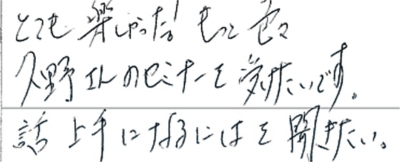 とても楽しかった! もっと色々
久野さんのセミナーを受けたいです。
話上手になるにはを聞きたい。